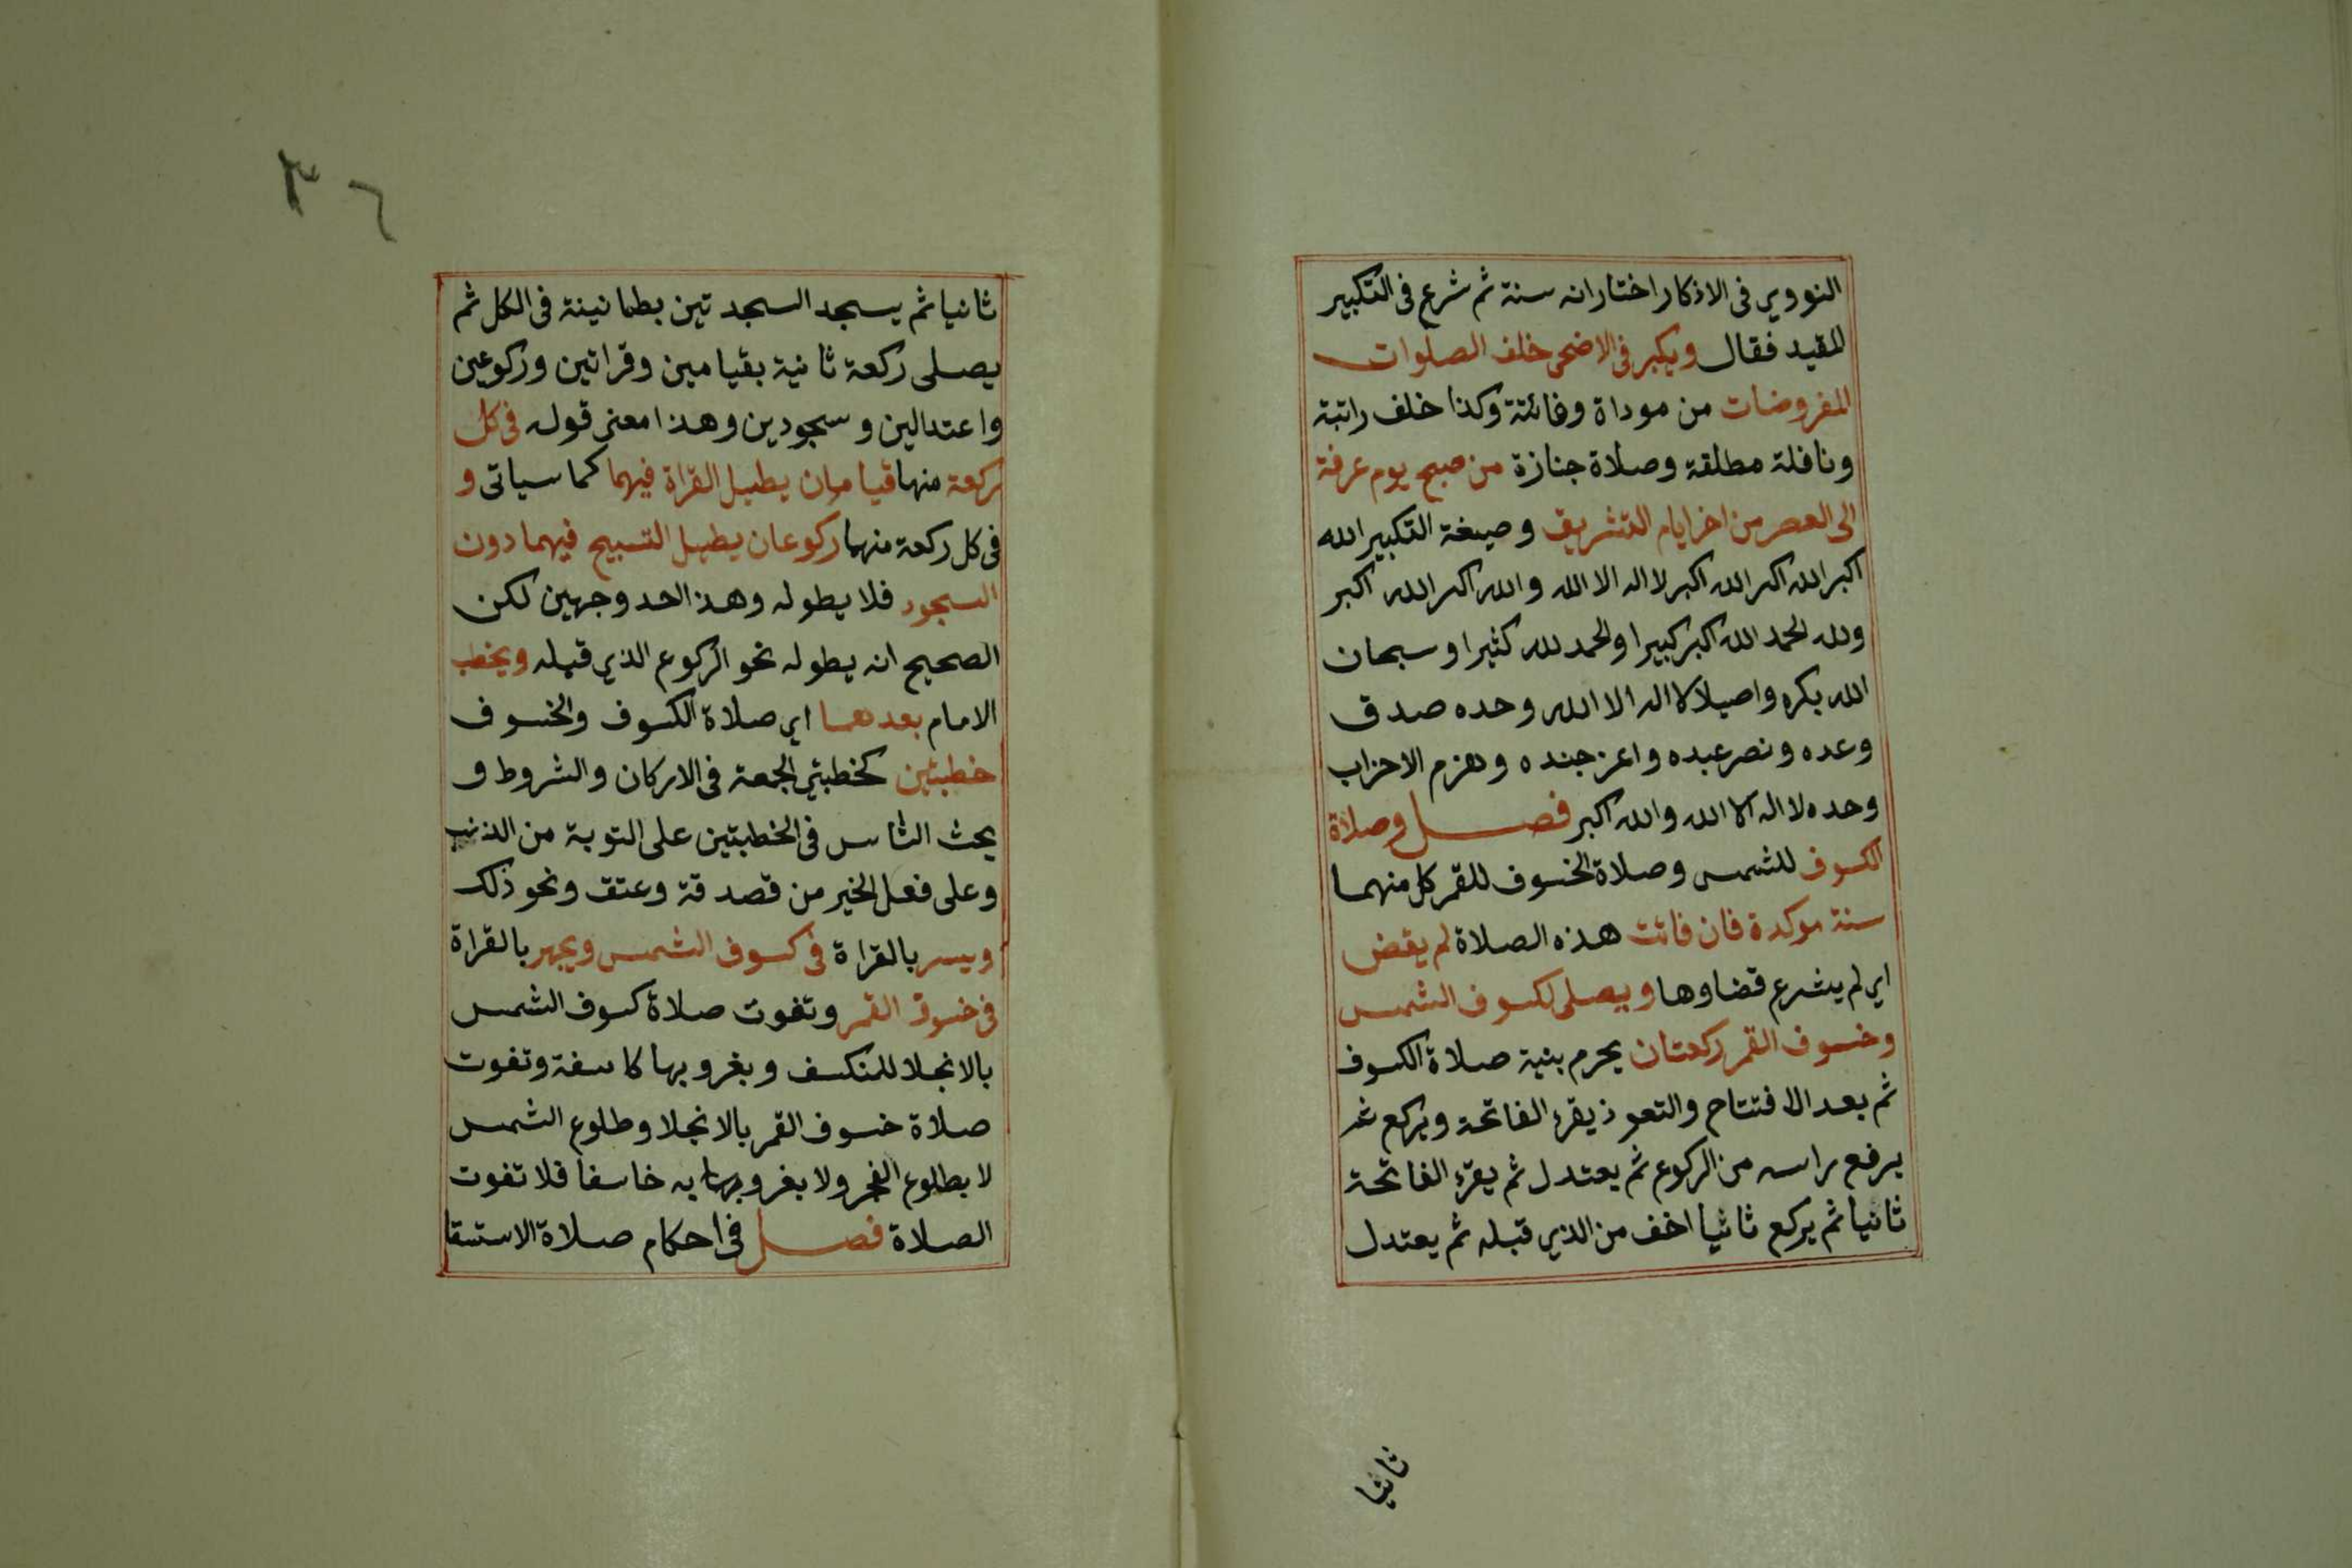 النووي في الاذكار اختار انه سنة ثم شرع في التكبير
المقيد فقال ويكبر في الاضحى خلف الصلوات
المفروضات من موداة وفائتة وكذا خلف راتبة
ونافلة مطلقة وصلاة جنازة من صبح يوم عرفة
الى العصر من اخر ايام التشريق وصيغة التكبير الله
اكبر الله اكبر الله اكبر لا اله الا الله والله اكبر الله اكبر
ولله الحمد الله اكبر كبيرا والحمد لله كثيرا وسبحان
الله بكرة واصيلا لا اله الا الله وحده صدق
وعده ونصر عبده واعز جنده وهزم الاحزاب
وحده لا اله الا الله والله اكبر فصل وصلاة
الكسوف للشمس وصلاة الخسوف للقمر كل منهما
سنة موكدة فان فاتت هذه الصلاة لم يقض
اي لم يشرع قضاوها ويصلى لكسوف الشمس
وخسوف القمر ركعتان يحرم بنية صلاة الكسوف
ثم بعد الافتتاح والتعوذ يقرء الفاتحة ويركع ثم
يرفع راسه من الركوع ثم يعتدل ثم يقرء الفاتحة
ثانيا ثم يركع ثانيا اخف من الذي قبله ثم يعتدل
ثانيا
٣٦
ثانيا ثم يسجد السجدتين بطمانينة في الكل ثم
يصلى ركعة ثانية بقيامين وقراتين وركوعين
واعتدالين وسجودين وهذا معنى قوله في كل
ركعة منها قيامان يطيل القراة فيهما كما سياتى و
في كل ركعة منهما ركوعان يطيل التسبيح فيهما دون
السجود فلا يطوله وهذا احد وجهين لكن
الصحيح انه يطوله نحو الركوع الذي قبله ويخطب
الامام بعدهما اي صلاة الكسوف والخسوف
خطبتين كخطبتي الجمعة في الاركان والشروط و
يحث الناس في الخطبتين على التوبة من الذنب
وعلى فعل الخير من قصدقة وعتق ونحو ذلك
ويسر بالقراة في كسوف الشمس ويجهر بالقراة
في خسوف القمر وتفوت صلاة كسوف الشمس
بالانجلا للمنكسف وبغروبها كاسفة وتفوت
صلاة خسوف القمر بالانجلا وطلوع الشمس
لا بطلوع الفجر ولا بغروبه خاسفا فلا تفوت
الصلاة فصل في احكام صلاة الاستسقا